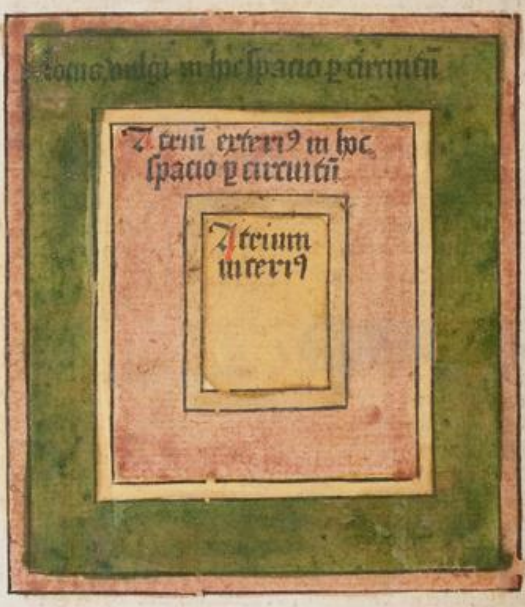 Locus vulgi in hoc spacio ꝑ circuitū
Atriū exteriꝰ in hoc
spacio ꝑ circuitū
Atrium
interiꝰ